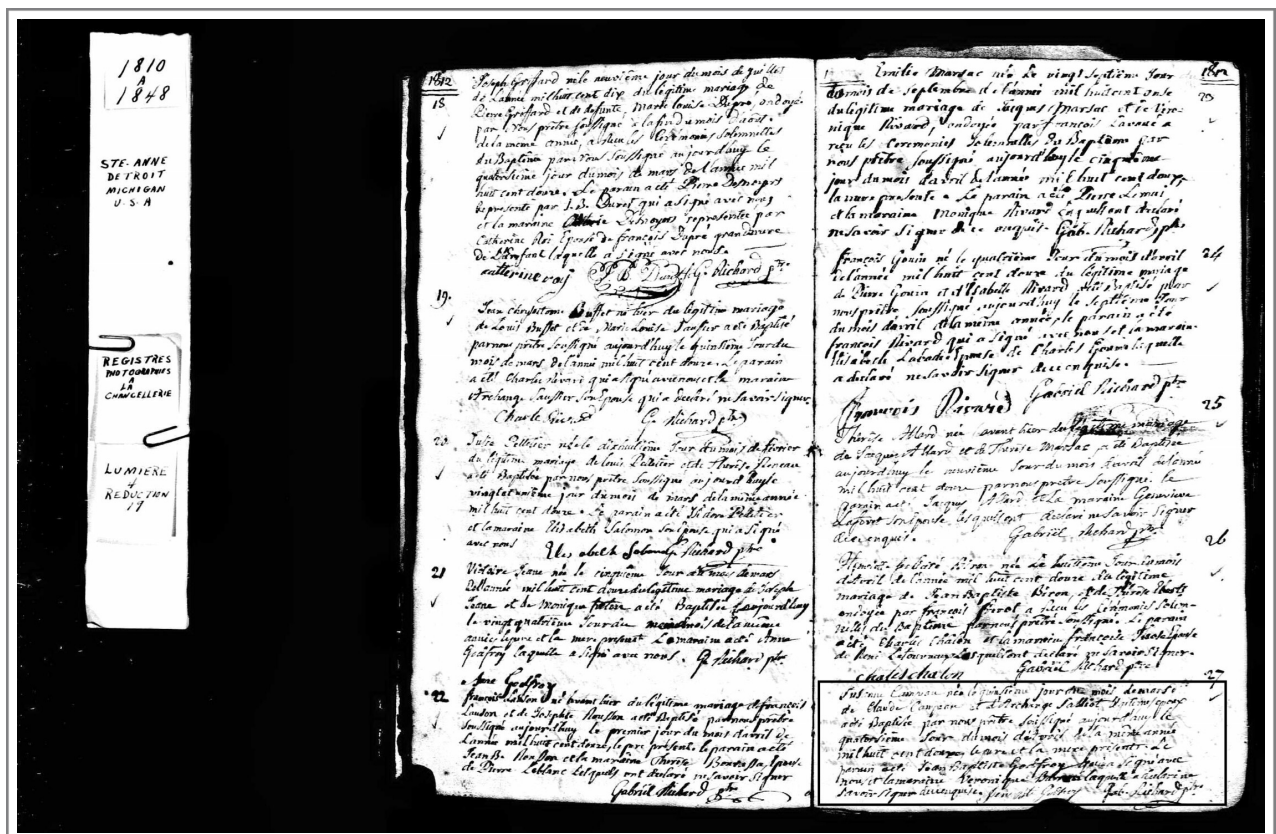 1810
A
1848
STE-ANNE
DETROIT
MICHIGAN
U.S.A
REGISTRES
PHOTOGRAPHIES
A
LA
CHANCELLERIE
LUMIERE
+
REDUCTION
1812
18
Joseph Groffard né le neuvième jour du mois de
de l'année mil huit cent dix du légitime mariage de
Pierre Groffard et de defunte Marie Louise Dupré, ondoyé
par Nous prêtre soussigné à la fin du mois d'aout
de la même année, a reçu les Ceremonies solemnelles
du Baptême par Nous soussigné aujourd'huy le
quatorsième jour du mois de mars de l'année mil
huit cent douze. Le parain a été Pierre Desnoyers
représenté par J. B. Duret qui a signé avec nous
et la maraine Desnoyers representée par
Catherine Roi Epouse de françois Dupré grandmere
de l'enfant laquelle a signé avec nous.
catterine roy J B Duret G. Richard ptre
19.
Jean chrysostome Buffet né hier du légitime mariage
de Louis Buffet et de Marie Louise Saussier a été Baptisé
par nous prêtre soussigné aujourd'huy le quinsième jour du
mois de mars de l'année mil huit cent douze. Le parain
a été Charle Rivard qui a signé avec nous et la maraine
Archange Saussier son Epouse qui a déclaré ne savoir signer.
Charle G. Richard ptre
20
Julie Pelletier née le dixhuitième Jour du mois de fevrier
du légitime mariage de louis Pelletier et de Therese
a été Baptisée par nous prêtre soussigné aujourd'huy le
vingt unième jour du mois de mars de la même année
mil huit cent douze. Le parain a été Isidore Pelletier
et la maraine Elisabeth Salomon son Epouse qui a signé
avec nous Elesabelh G. Richard ptre
21
Victoire Jeane née le cinquième Jour du mois de mars
de l'année mil huit cent douze du légitime mariage de Joseph
Jeane et de Monique a été Baptisée aujourd'huy
le vingt quatrième Jour du mois de la même
année le pere et la mere présent La maraine a été Anne
Godfroy laquelle a signé avec nous. G. Richard ptre
Anne Godfroy
22
françois Lauson né avant hier du légitime mariage de françois
Lauson et de Josephte Rousson a été Baptisé par nous prêtre
soussigné aujourd'huy le premier jour du mois d'avril de
l'année mil huit cent douze, le pere présent, le parain a été
Jean Bte Rousson et la maraine Thérèse Bourassa Epouse
de Pierre Leblanc lesquels ont déclaré ne savoir signer
Gabriel Richard ptre
1812
23
Emilie Marsac née le vingt Septième Jour
du mois de septembre de l'année mil huit cent onse
du légitime mariage de Jacques Marsac et de
Rivard, ondoyée par françois a
reçu les Ceremonies Solemnelles du Baptême par
nous prêtre soussigné aujourd'huy le cinquième
jour du mois d'avril de l'année mil huit cent douze,
la mere presente. Le parain a été Pierre
et la maraine Monique Rivard lesquels ont déclaré
ne savoir signer de ce enquis. Gab. Richard, ptre
24
françois Gouin né le quatrième Jour du mois d'avril
de l'année mil huit cent douze du légitime mariage
de Pierre Gouin et d'Isabelle Rivard a été Baptisé par
nous prêtre soussigné aujourd'huy le septième Jour
du mois d'avril de la même année, le parain a été
françois Rivard qui a signé avec nous et la maraine
Elisabeth Labadie Epouse de Charles Gouin laquelle
a déclaré ne savoir signer de ce enquise.
François Rivard Gabriel Richard ptre
25
Thérèse Allard née avant hier du légitime mariage
de Jacques Allard et de Thérèse Marsac a été Baptisée
aujourd'huy le neuvième Jour du mois d'avril de l'année
mil huit cent douze par nous prêtre soussigné. le
parain a été Jacques Allard et La maraine Genevieve
Laforet son Epouse, lesquels ont déclaré ne savoir signer
de ce enquis. Gabriel Richard ptre
26
Biron née Le huitième Jour du mois
d'avril de l'année mil huit cent douze du légitime
mariage de Jean Baptiste Biron et de Thérèse
ondoyée par françois a reçu les Cérémonies Solem-
nelles du Baptême par nous prêtre soussigné. Le parain
a été Charles Chalon et la maraine françoise Epouse
de René Letourneux lesquels ont déclaré ne savoir signer.
chales chalon Gabriel Richard ptre
27
Susanne Campau née le quinsième jour du mois de mars
de Claude Campeau et d'Archange Salliot Epoux
a été Baptisée par nous prêtre soussigné aujourd'huy le
quatorsième Jour du mois d'avril de la même année
mil huit cent douze le pere et la mere présents. Le
parain a été Jean Baptiste Godfroy qui a signé avec
nous et la maraine Veronique laquelle a déclaré ne
savoir signer de ce enquise. Jean Bt Godfroy Gab. Richard ptre